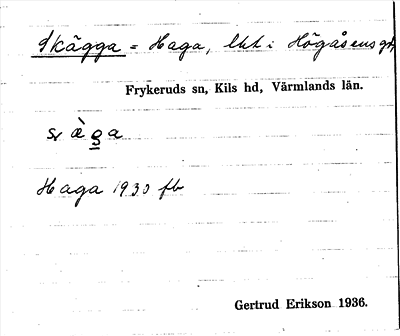 Skägga = Haga, lht i Högåsens gd,
Frykeruds sn, Kils hd, Värmlands län.
Haga 1930 fb
Gertrud Erikson 1936.